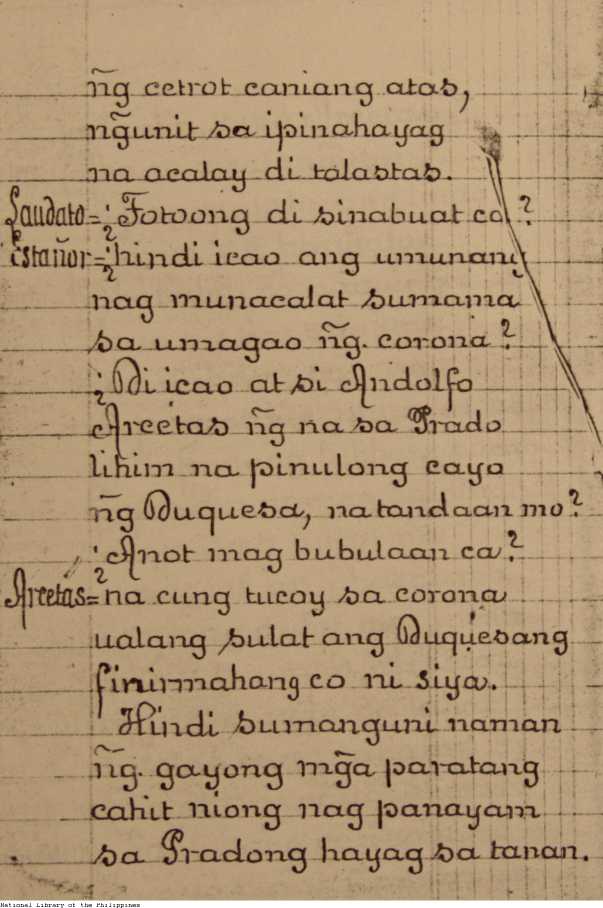 ñg cetrot caniang atas,
ng̃unit sa ipinahayag
na acalay di tolastas.
Laudato=¿Totoong di sinabuat ca?
Estañor=¿hindi icao ang umunang
nag munacalat sumama
sa umagao ñg. corona?
¿Di icao at si Andolfo
Arcetas ñg na sa Prado
lihim na pinulong cayo
ñg Duquesa, natandaan mo?
¿Anot mag bubulaan ca?
Arcetás=na cung tucoy sa corona
ualang sulat ang Duquesang
finirmahang co ni siya.
Hindi sumanguni naman
ñg. gayong mg̃a paratang
cahit niong nag panayam
sa Pradong hayag sa tanan.
National Library of the Philippines